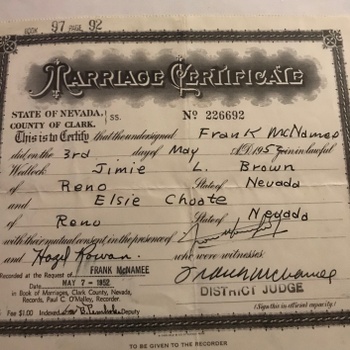 BOOK 97 PAGE 92
MARRIAGE CERTIFICATE
STATE OF NEVADA, SS. No 226692
COUNTY OF CLARK.
This is to Certify that the undersigned Frank McNamee
did, on the 3rd day of May A.D. 195 join in lawful
Wedlock Jimie L. Brown
of Reno State of Nevada
and Elsie Choate
of Reno State of Nevada
with their mutual consent, in the presence of
and Hazel Rowan who were witnesses.
Recorded at the Request of
FRANK McNAMEE Frank McNamee
MAY 7 - 1952 DISTRICT JUDGE
in Book of Marriages, Clark County, Nevada, (Sign this in official capacity)
Records, Paul C. O'Malley, Recorder.
Fee $1.00 Indexed
TO BE GIVEN TO THE RECORDER